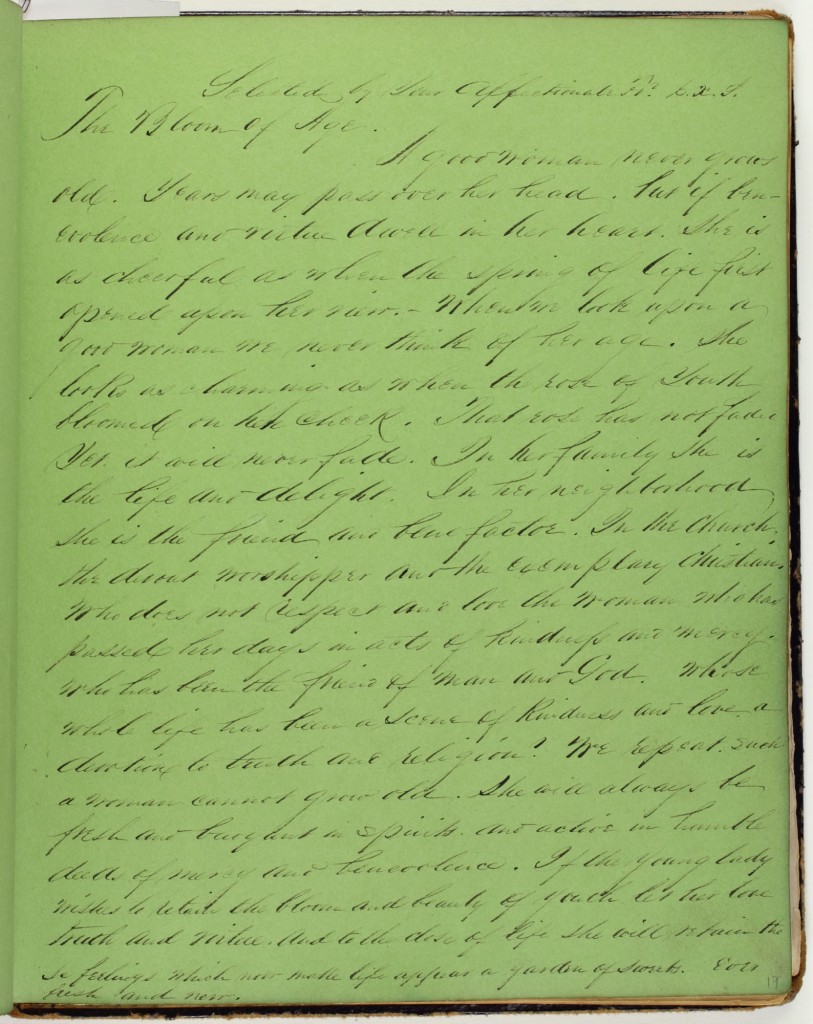 Selected by Your Affectionate Fr. L. X. T.
The Bloom of Age.
A good woman never grows
old. Years may pass over her head. but if ben-
evolence and virtue dwell in her heart. She is
as cheerful as when the spring of life first
opened upon her view. - When we look upon a
good woman we never think of her age. She
looks as charming as when the rose of Youth
bloomed on her cheek. That rose has not faded
Yet. it will never fade. In her family she is
the life and delight. In her neighborhood
she is the friend and benefactor. In the Church,
the devout worshipper and the exemplary Christian.
Who does not respect and love the woman who has
passed her days in acts of kindness and mercy.
Who has been the friend of man and God. Whose
whole life has been a scene of Kindness and love. a
devotion to truth and religion? We repeat. such
a woman cannot grow old. She will always be
fresh and buoyant in spirits. and active in humble
deeds of mercy and benevolence. If the young lady
wishes to retain the bloom and beauty of youth let her love
truth and virtue. And to the close of life she will retain the
se feelings which now make life appear a garden of sweets. Ever
fresh and new.
19